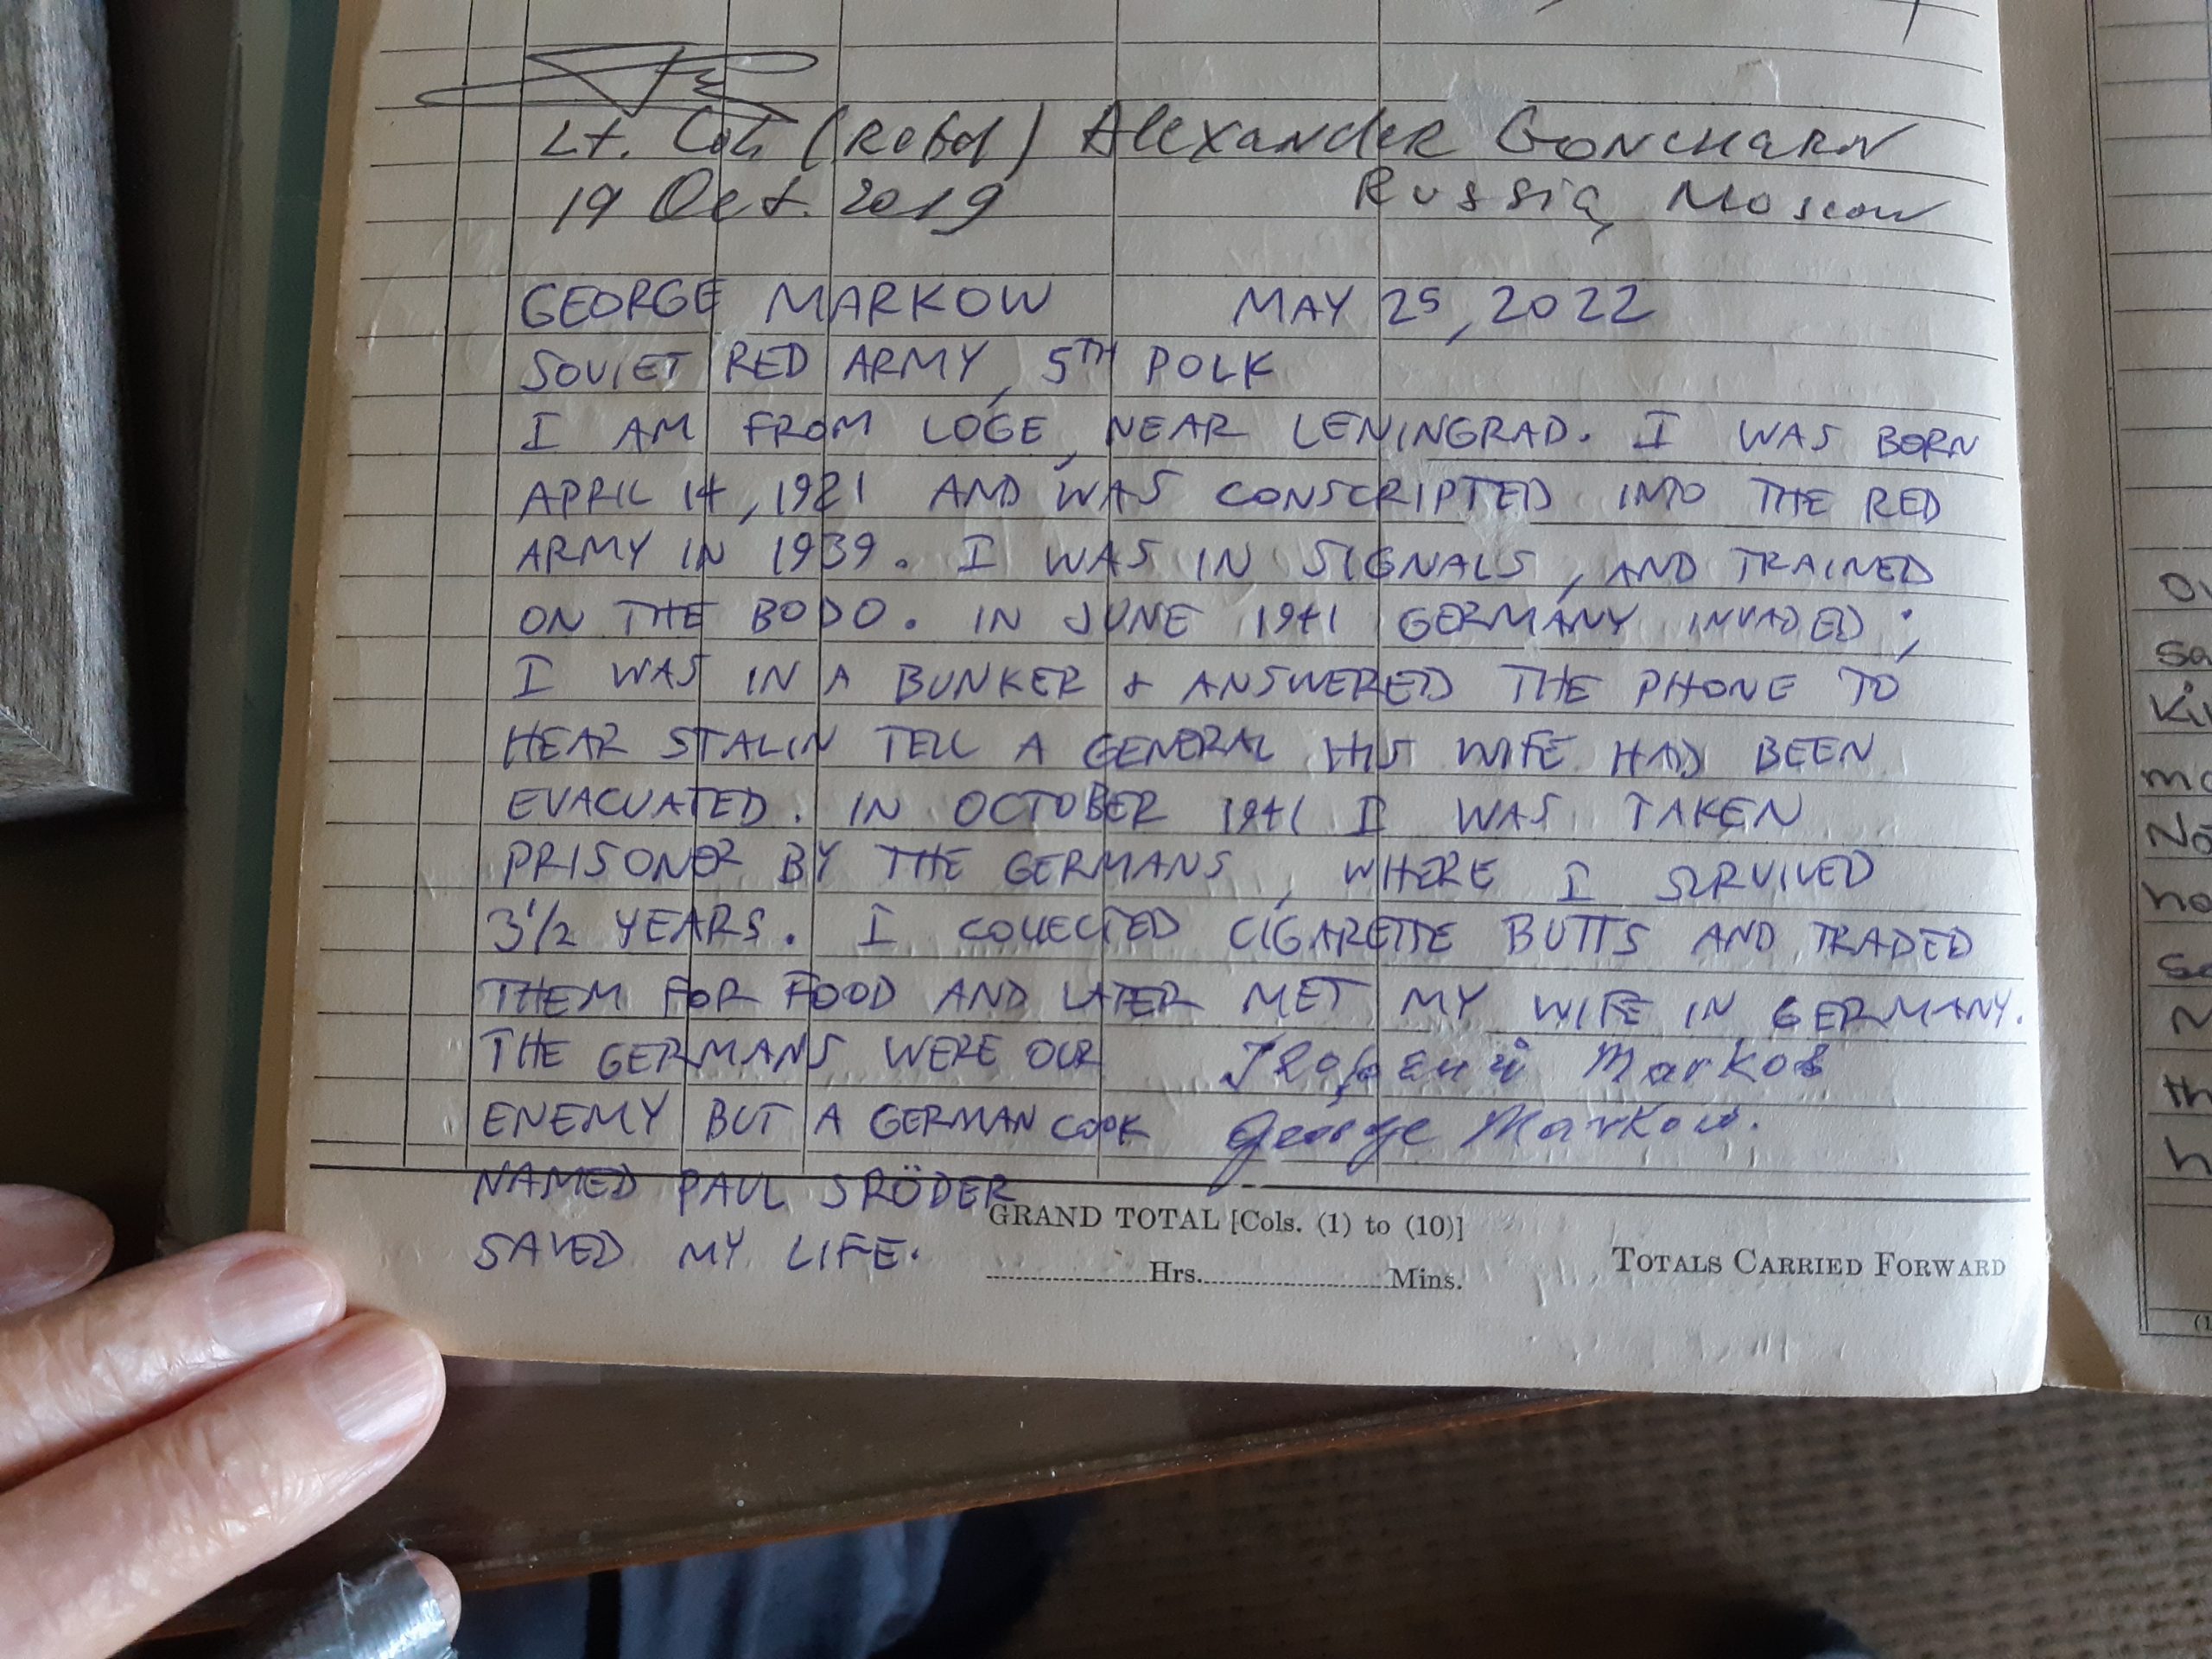 Lt. Col. (Retd) Alexander Goncharn
19 Oct. 2019 Russia, Moscow
GEORGE MARKOW MAY 25, 2022
SOVIET RED ARMY, 5TH POLK
I AM FROM LOGE, NEAR LENINGRAD. I WAS BORN
APRIL 14, 1921 AND WAS CONSCRIPTED INTO THE RED
ARMY IN 1939. I WAS IN SIGNALS, AND TRAINED
ON THE BODO. IN JUNE 1941 GERMANY INVADED;
I WAS IN A BUNKER & ANSWERED THE PHONE TO
HEAR STALIN TELL A GENERAL HIS WIFE HAD BEEN
EVACUATED. IN OCTOBER 1941 I WAS TAKEN
PRISONER BY THE GERMANS, WHERE I SURVIVED
3 1/2 YEARS. I COLLECTED CIGARETTE BUTTS AND TRADED
THEM FOR FOOD AND LATER MET MY WIFE IN GERMANY.
THE GERMANS WERE OUR
ENEMY BUT A GERMAN COOK
NAMED PAUL SRÖDER
SAVED MY LIFE.
Марков
George Markow.
GRAND TOTAL [Cols. (1) to (10)]
Hrs. Mins.
TOTALS CARRIED FORWARD